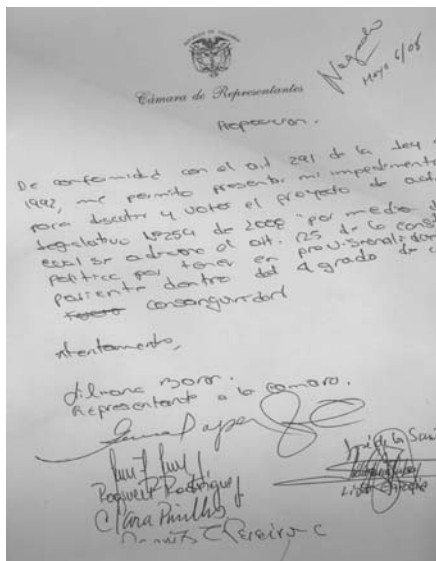 Negado
Mayo 6/08
Cámara de Representantes
Proposicion.
De conformidad con el art 291 de la Ley
1992, me permito presentar mi impedimento
para discutir y votar el proyecto de acto
legislativo Nº 254 de 2008 "por medio
cual se adiciona el art. 125 de la
política por tener en provisionalidad
pariente dentro del 4 grado de
consanguinidad
Atentamente,
Liliana Barón.
Representante a la Camara.
Rodriguez
Clara Pinillos
Pereira C